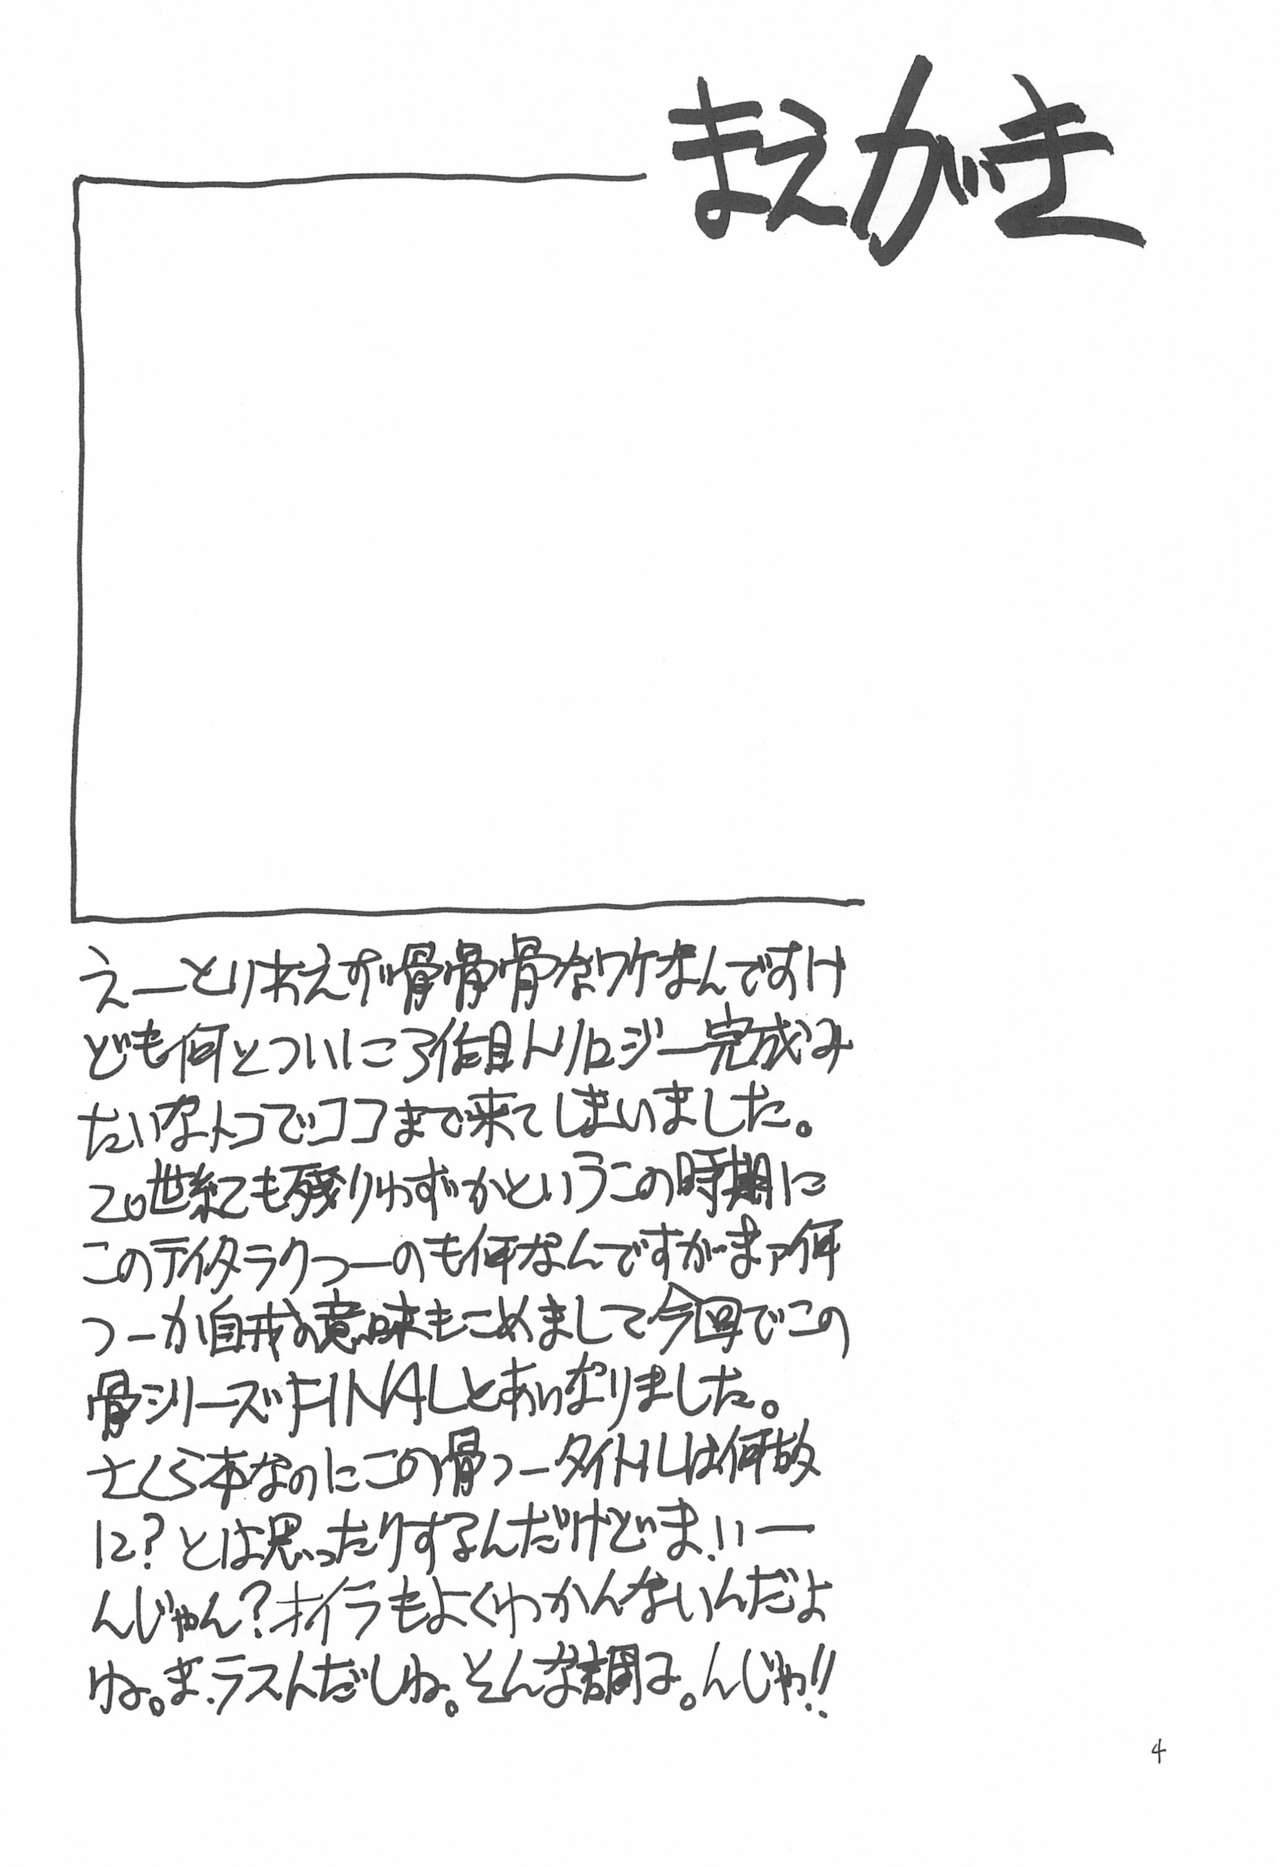 まえがき
えーとりあえず骨骨骨なワケなんですけ
ども何とついに3作目トリロジー完成み
たいなトコでココまで来てしまいました。
20世紀も残りわずかというこの時期に
このテイタラクつーのも何なんですがまァ何
つーか自戒の意味もこめまして今回でこの
骨シリーズFINALとあいなりました。
さくら本なのにこの骨つータイトルは何故
に?とは思ったりするんだけどま、いー
んじゃん?オイラもよくわかんないんだよ
ね。ま、ラストだしね。そんな調子。んじゃ!!
4